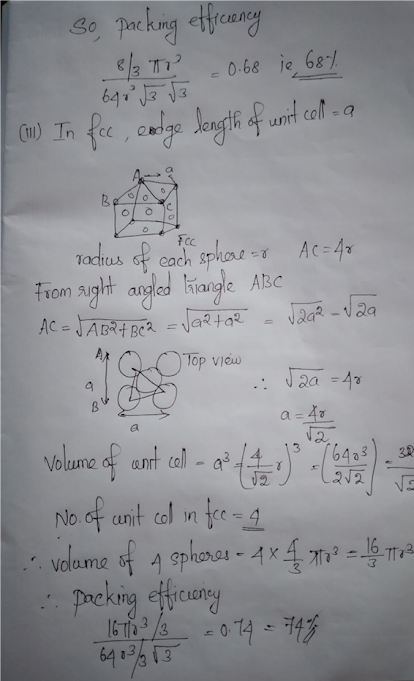 So, packing efficiency
8/3 πr³ / 64r³ √3 √3 = 0.68 ie 68%
(III) In fcc, edge length of unit cell = a
A a
B C
Fcc
radius of each sphere = r AC = 4r
From right angled triangle ABC
AC = √AB²+BC² = √a²+a² = √2a² - √2a
A Top view
a
B
a
∴ √2a = 4r
a = 4r/√2
Volume of unit cell = a³ = (4/√2 r)³ = (64r³/2√2) = 32/√2
No. of unit cel in fcc = 4
∴ volume of 4 spheres = 4 × 4/3 πr³ = 16/3 πr³
∴ packing efficiency
16πr³/3 / 64r³/3√3 = 0.74 = 74%